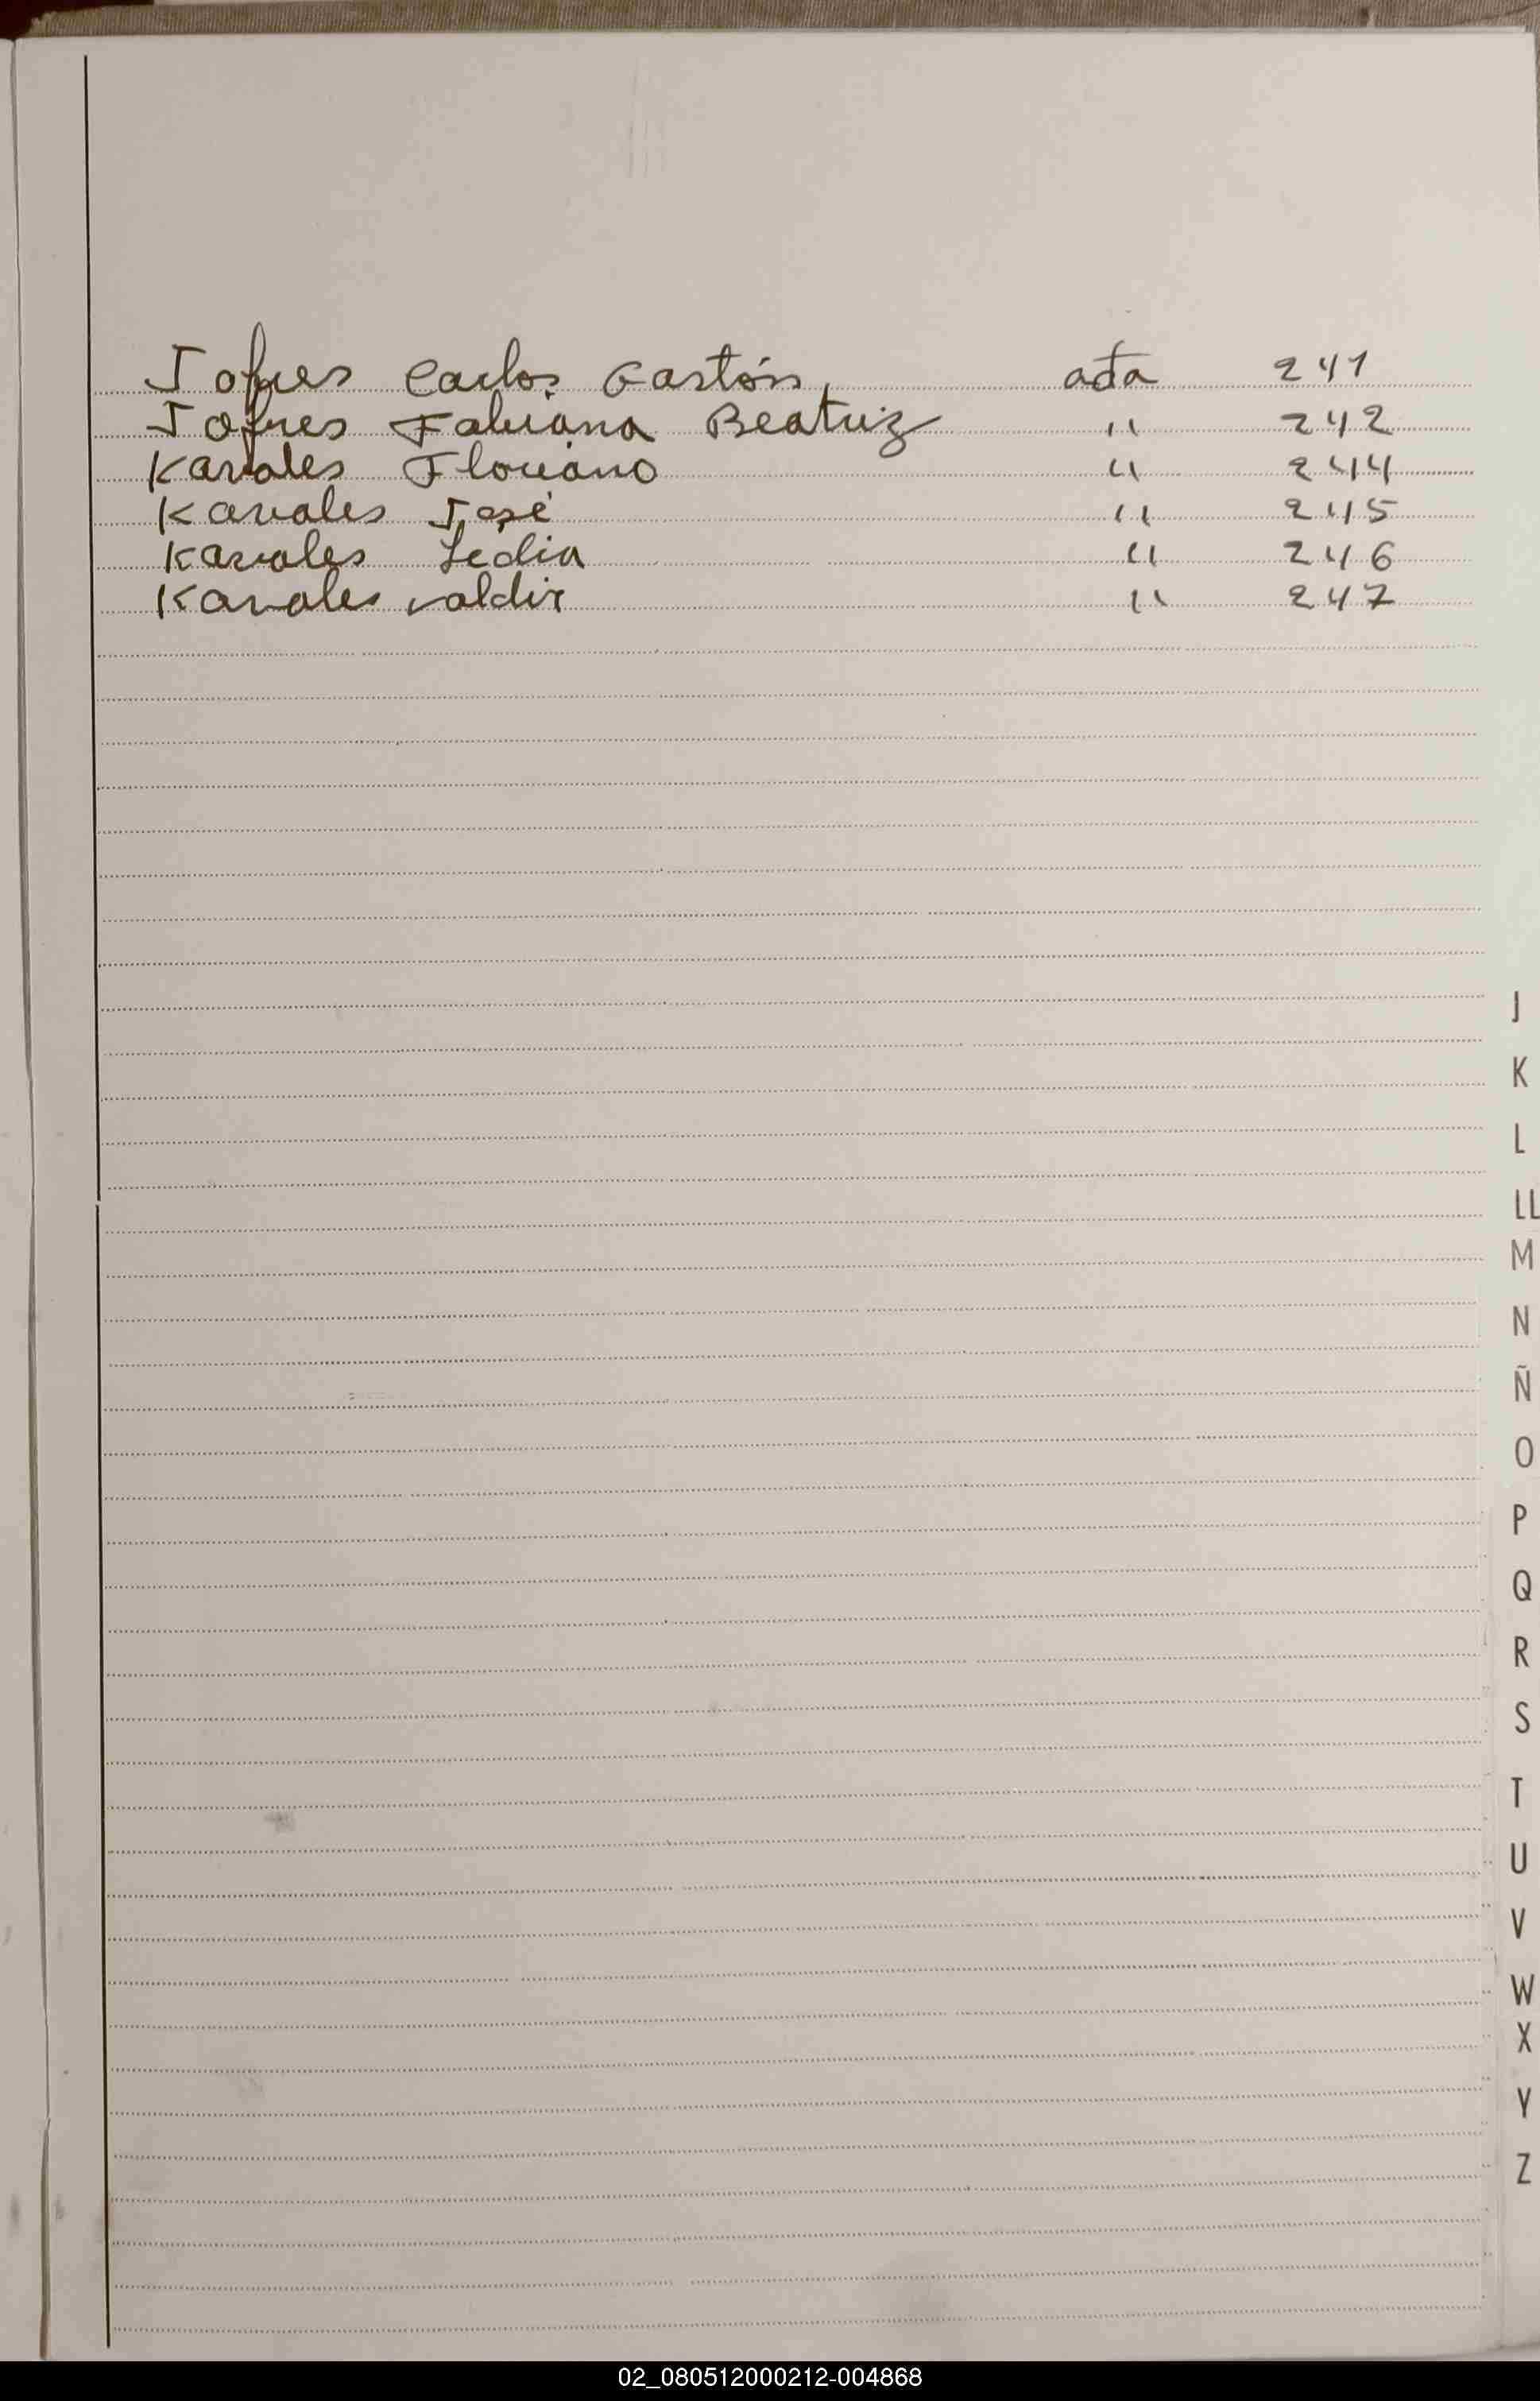 Jofres Carlos Gastón, acta 241
Jofres Fabiana Beatriz " 242
Karvales Floriano " 244
Kavales José " 245
Kavales Ledia " 246
Kavales Valdir " 247
J
K
L
LL
M
N
Ñ
O
P
Q
R
S
T
U
V
W
X
Y
Z
02_080512000212-004868